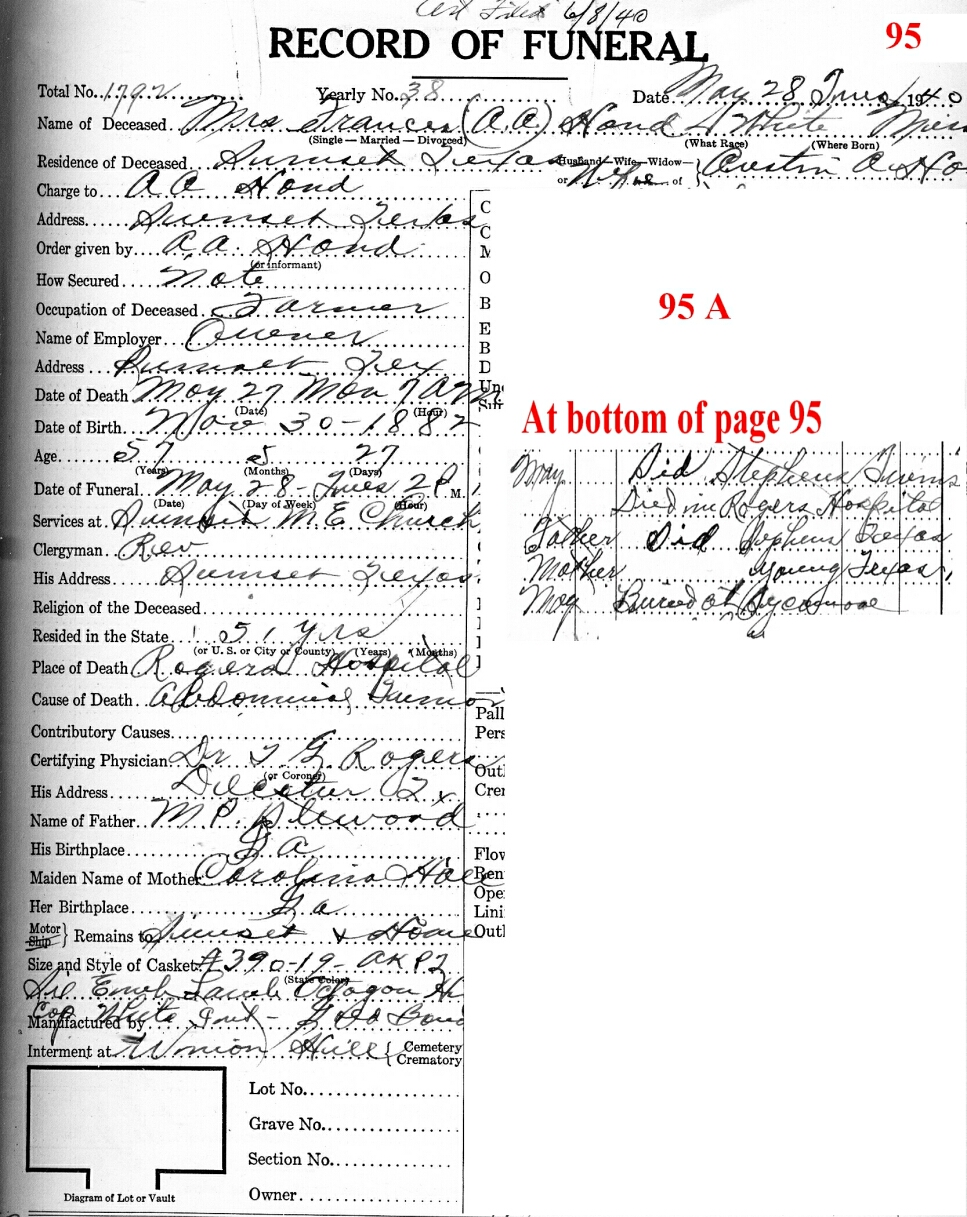 Cert Filed 6/8/40
95
RECORD OF FUNERAL
Total No. 1792 Yearly No. 38 Date May 28 Tues 1940
Name of Deceased Mrs Frances (A.A.) Hond White Miss
(Single — Married — Divorced) (What Race) (Where Born)
Residence of Deceased Sunset Texas Husband—Wife—Widow— or Wife of } Austin A Ho
Charge to A A Hond
Address Sunset Texas
Order given by A.A. Hond
(or informant)
How Secured Note
Occupation of Deceased Farmer
Name of Employer Owner
Address Sunset Tex
Date of Death May 27 Mon 7 AM
(Date) (Hour)
Date of Birth Nov 30-1882
Age 57 5 27
(Years) (Months) (Days)
Date of Funeral May 28- Tues 2 P M.
(Date) (Day of Week) (Hour)
Services at Sunset M.E. Church
Clergyman Rev
His Address Sunset Texas
Religion of the Deceased
Resided in the State 51 yrs
(or U. S. or City or County) (Years) (Months)
Place of Death Rogers Hospital
Cause of Death Abdominal Tumor
Contributory Causes
Certifying Physician Dr T G Rogers
(or Coroner)
His Address Decatur Tx
Name of Father M.P.
His Birthplace Ga
Maiden Name of Mother Carolina
Her Birthplace Ga
Motor
Ship } Remains to Sunset & Home
Size and Style of Casket #390-19- AKP2
(State Color)
Sil Emb Lamb Octagon
Cop White Int -
Manufactured by
Interment at Union Hill { Cemetery
Crematory
Lot No.
Grave No.
Section No.
Owner
Diagram of Lot or Vault
C
C
M
O
B
E
B
D
Un
Pall
Pers
Outl
Crem
Flov
Ren
Ope
Lini
Outl
95 A
At bottom of page 95
May Did Stephens
Died in Rogers Hospital
Father Did Stephens Texas
Mother Young Texas
May Buried at Sycamore